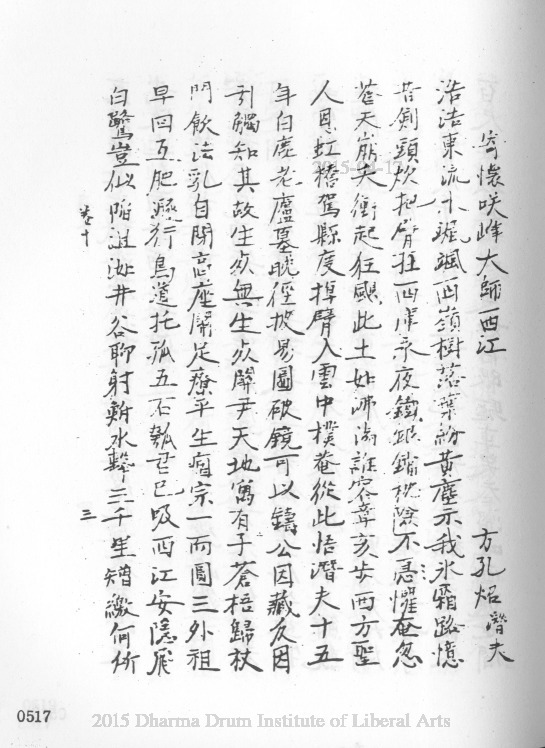 寄懷咲峰大師西江 方孔炤潛夫
浩浩東流水 飄西嶺樹落葉紛黃塵示我氷霜路憶
昔劍頭炊把臂狂西 永夜鐵銀鐺 險不憂懼奄忽
蒼天崩 衝起狂飈此土如沸 誰容章亥步西方聖
人 虹橋駕縣度掉臂入雲中樸菴從此悟潛夫十五
年白鹿老廬墓晚徑披易圖破鏡可以鑄公因藏反因
引觸知其故生死無生死關尹天地寓有子蒼梧歸杖
門飲法乳自閉高座關足療平生痼宗一而圓三外祖
早四互肥遯行鳥道托孤五石瓠君已吸西江安隱飛
白鷺豈似陷 井谷聊射 水 三千里矰繳何所
卷十 三
0517 2015 Dharma Drum Institute of Liberal Arts